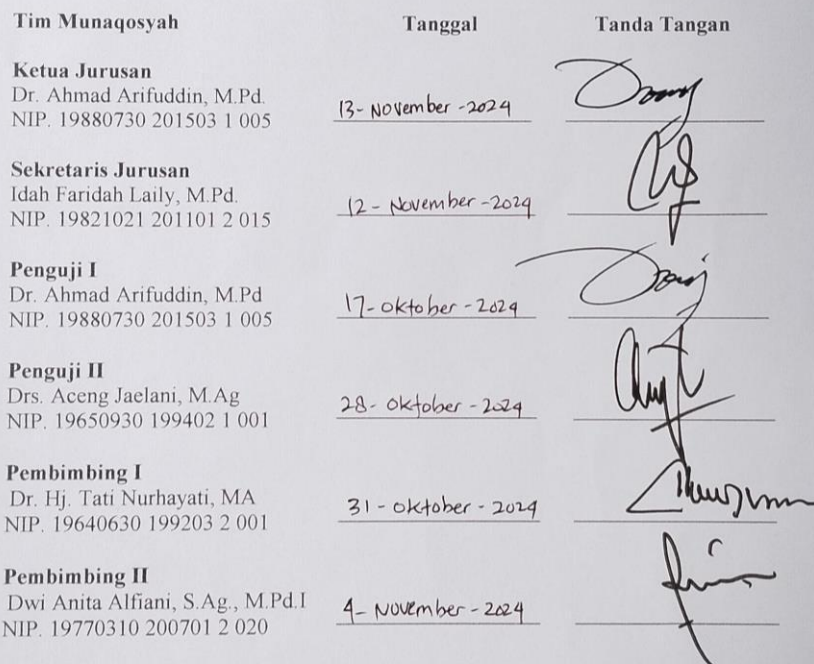 Tim Munaqosyah Tanggal Tanda Tangan
Ketua Jurusan
Dr. Ahmad Arifuddin, M.Pd.
NIP. 19880730 201503 1 005
13-November-2024
Sekretaris Jurusan
Idah Faridah Laily, M.Pd.
NIP. 19821021 201101 2 015
12-November-2024
Penguji I
Dr. Ahmad Arifuddin, M.Pd
NIP. 19880730 201503 1 005
17-Oktober-2024
Penguji II
Drs. Aceng Jaelani, M.Ag
NIP. 19650930 199402 1 001
28-Oktober-2024
Pembimbing I
Dr. Hj. Tati Nurhayati, MA
NIP. 19640630 199203 2 001
31-Oktober-2024
Pembimbing II
Dwi Anita Alfiani, S.Ag., M.Pd.I
NIP. 19770310 200701 2 020
4-November-2024